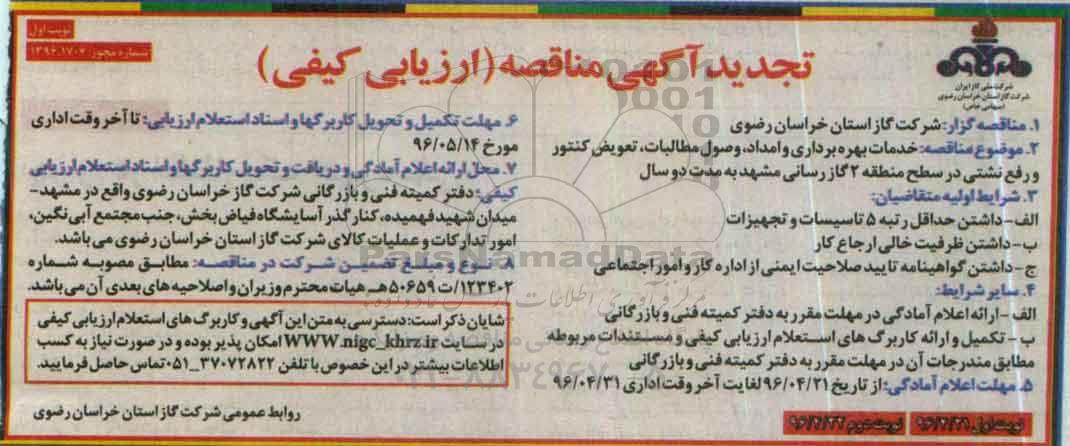 نوبت اول
شماره مجوز: ۱۳۹۶.۱۷۰۷
تجدید آگهی مناقصه (ارزیابی کیفی)
شرکت ملی گاز ایران
شرکت گاز استان خراسان رضوی
(سهامی خاص)
۱. مناقصه گزار: شرکت گاز استان خراسان رضوی
۲. موضوع مناقصه: خدمات بهره برداری و امداد، وصول مطالبات، تعویض کنتور
و رفع نشتی در سطح منطقه ۲ گاز رسانی مشهد به مدت دو سال
۳. شرایط اولیه متقاضیان:
الف-داشتن حداقل رتبه ۵ تاسیسات و تجهیزات
ب-داشتن ظرفیت خالی ارجاع کار
ج-داشتن گواهینامه تایید صلاحیت ایمنی از اداره کار و امور اجتماعی
۴. سایر شرایط:
الف-ارائه اعلام آمادگی در مهلت مقرر به دفتر کمیته فنی و بازرگانی
ب- تکمیل و ارائه کاربرگ های استعلام ارزیابی کیفی و مستندات مربوطه
مطابق مندرجات آن در مهلت مقرر به دفتر کمیته فنی و بازرگانی
۵. مهلت اعلام آمادگی: از تاریخ ۹۶/۰۴/۲۱ لغایت آخر وقت اداری ۹۶/۰۴/۳۱
۶. مهلت تکمیل و تحویل کاربرگها و اسناد استعلام ارزیابی: تا آخر وقت اداری
مورخ ۹۶/۰۵/۱۴
۷. محل ارائه اعلام آمادگی و دریافت و تحویل کاربرگها و اسناد استعلام ارزیابی
کیفی: دفتر کمیته فنی و بازرگانی شرکت گاز خراسان رضوی واقع در مشهد-
میدان شهید فهمیده، کنار گذر آسایشگاه فیاض بخش، جنب مجتمع آبی نگین،
امور تدارکات و عملیات کالای شرکت گاز استان خراسان رضوی می باشد.
۸. نوع و مبلغ تضمین شرکت در مناقصه: مطابق مصوبه شماره
۱۲۳۴۰۲/ت ۵۰۶۵۹هـ هیات محترم وزیران و اصلاحیه های بعدی آن می باشد.
شایان ذکر است: دسترسی به متن این آگهی و کاربرگ های استعلام ارزیابی کیفی
در سایت WWW.nigc_khrz.ir امکان پذیر بوده و در صورت نیاز به کسب
اطلاعات بیشتر در این خصوص با تلفن ۳۷۰۷۲۸۲۲_۰۵۱ تماس حاصل فرمایید.
روابط عمومی شرکت گاز استان خراسان رضوی
نوبت اول ۹۶/۴/۲۱ نوبت دوم ۹۶/۴/۲۲
ParsNamadData
۰۲۱-۸۸۳۴۹۶۷۰